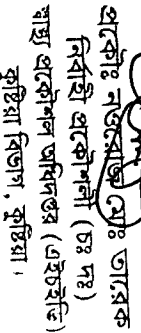 প্রকৌঃ নওয়োজ মোঃ তারেক
নির্বাহী প্রকৌশলী (চঃ দাঃ)
স্বাস্থ্য প্রকৌশল অধিদপ্তর (এইচইডি)
কুষ্টিয়া বিভাগ, কুষ্টিয়া।